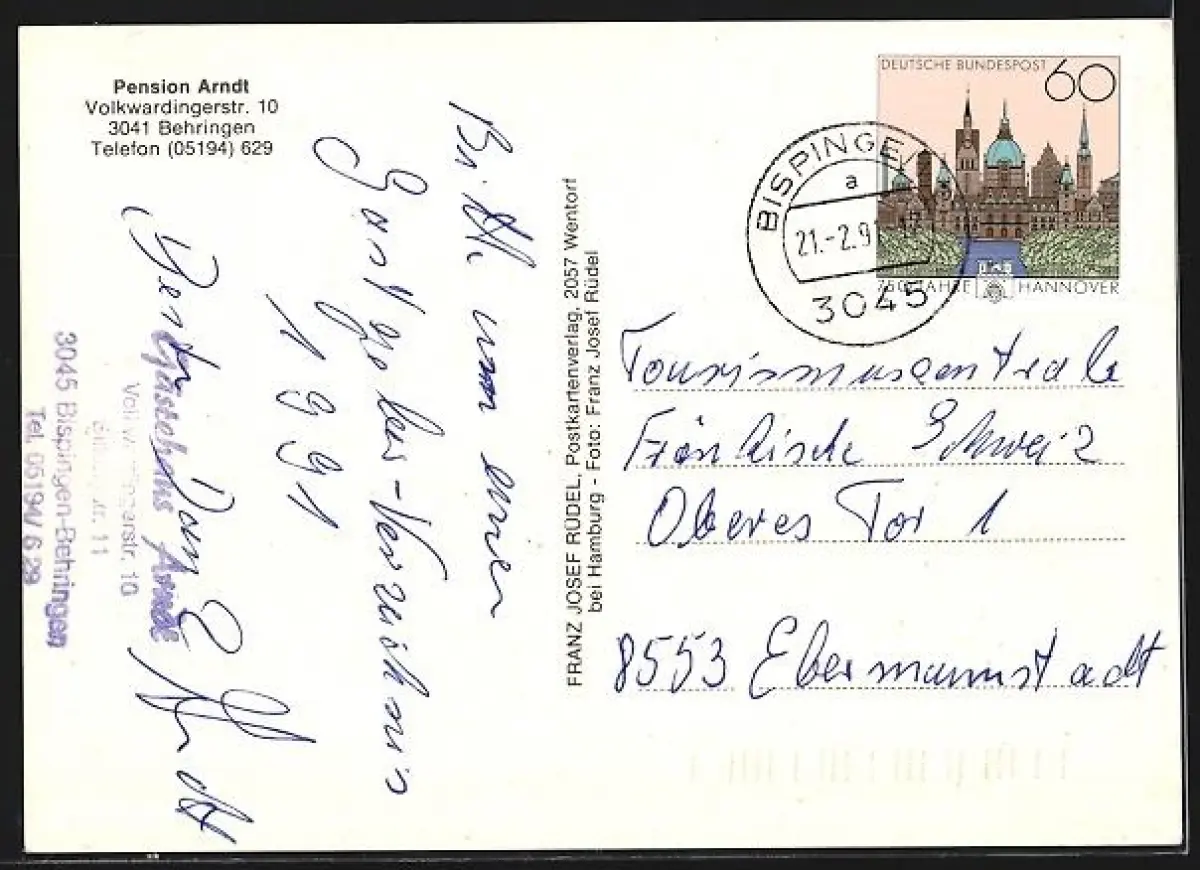 Pension Arndt
Volkwardingerstr. 10
3041 Behringen
Telefon (05194) 629
Bitte um einen
Gastgeber-Verzeichnis
1991
Besten Dank
Arndt
Gästehaus Arndt
Volkwardingerstr. 10
3045 Bispingen-Behringen
Tel. 05194/ 6 29
FRANZ JOSEF RÜDEL, Postkartenverlag, 2057 Wentorf
bei Hamburg - Foto: Franz Josef Rüdel
DEUTSCHE BUNDESPOST 60
750 JAHRE HANNOVER
BISPINGEN
a
21.-2.91
3045
Tourismuszentrale
Fränkische Schweiz
Oberes Tor 1
8553 Ebermannstadt